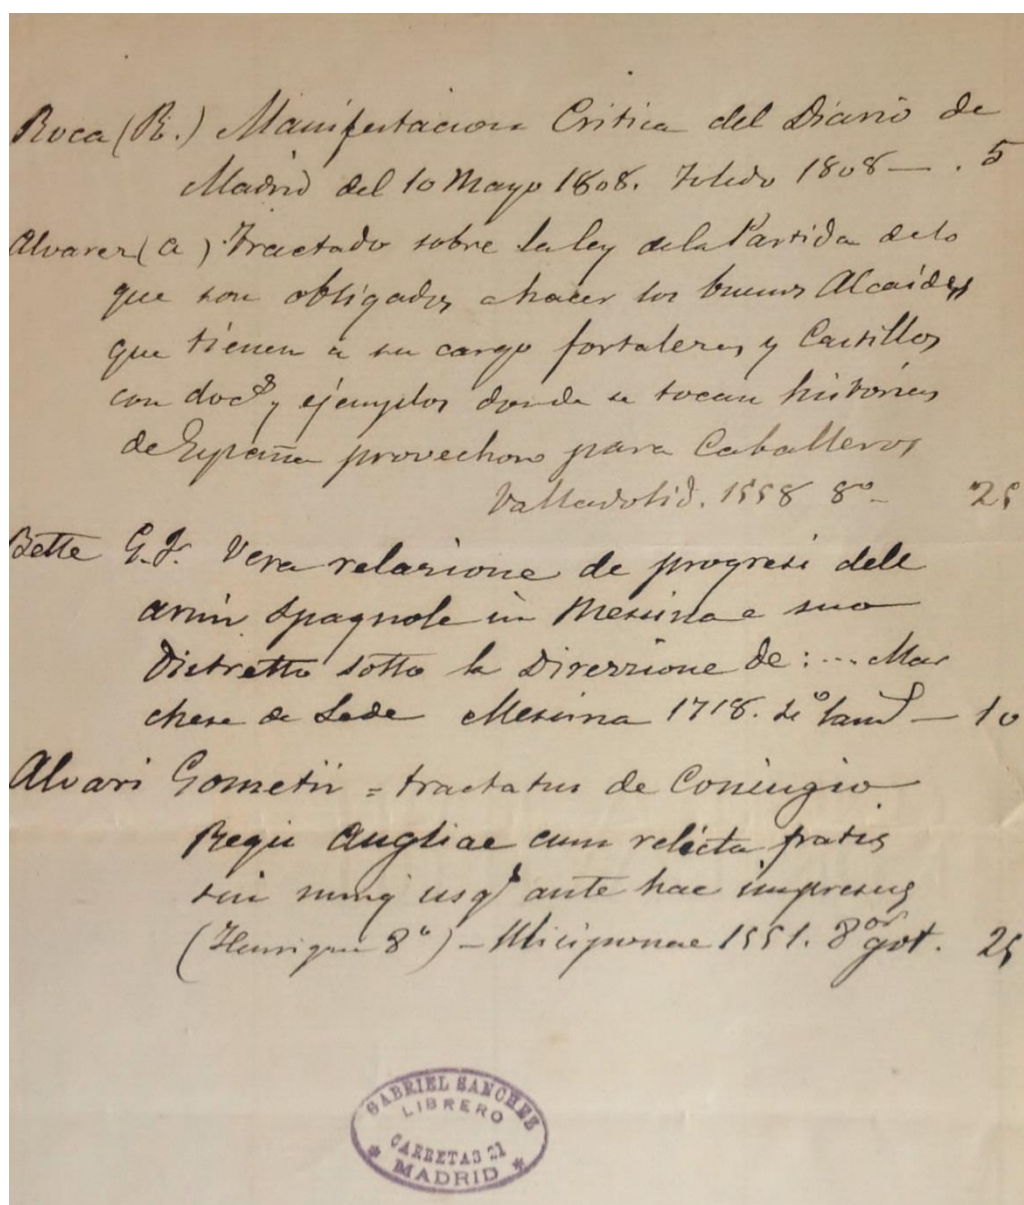 Roca (R.) Manifestacion Critica del Diario de
Madrid del 10 Mayo 1808. Toledo 1808 — . 5
Alvarez (A) Tractado sobre la ley de la Partida de lo
que son obligados a hacer los buenos Alcaides
que tienen a su cargo fortalezas y Castillos
con doc.s y ejemplos donde se tocan historias
de España provechoso para Caballeros
Valladolid. 1558 8º — 25
Bette G. F. Vera relazione de progresi dele
armi Spagnole in Messina e suo
Distretto sotto la Direzzione de: ... Mar
chese de Lede Messina 1718. — 10
Alvari Gometii = tractatus de Coniugio
Regis Angliae cum relicta fratis
sui nunq usq ante hac impresus
(Henrique 8º) — Ulisiponae 1551. 8º got. 25
GABRIEL SANCHEZ
LIBRERO
CARRETAS 21
* MADRID *